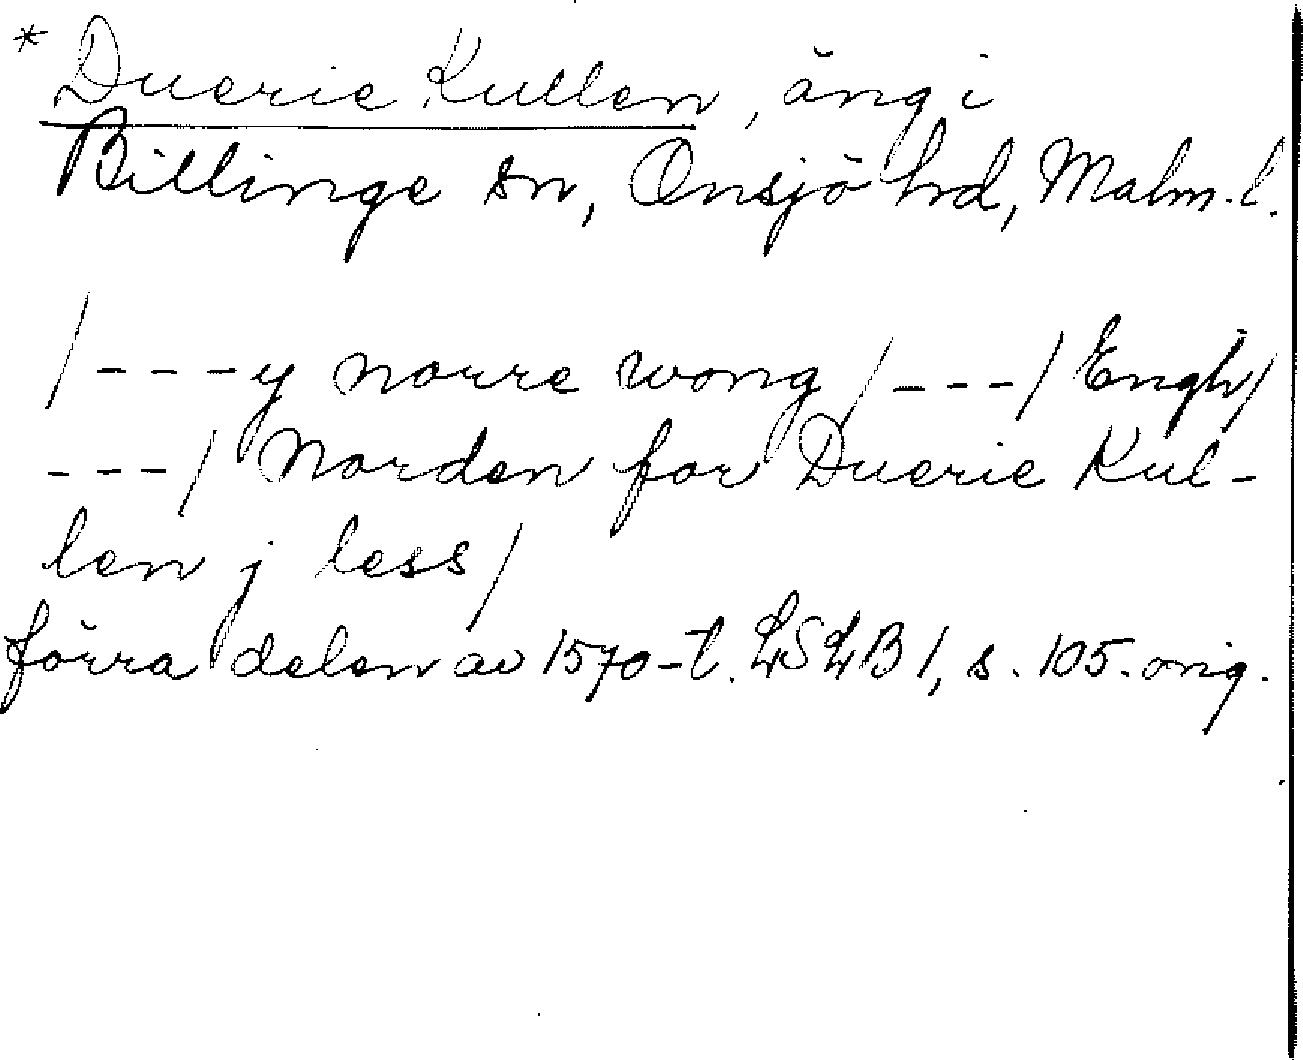 * Duerie Kullen, äng i
Billinge sn, Onsjö hd, Malm. l.
/---y norre wong /---/ Engh/
---/ Norden for Duerie Kul-
len j less/
förra delen av 1570-t. LSLB 1, s. 105. orig.